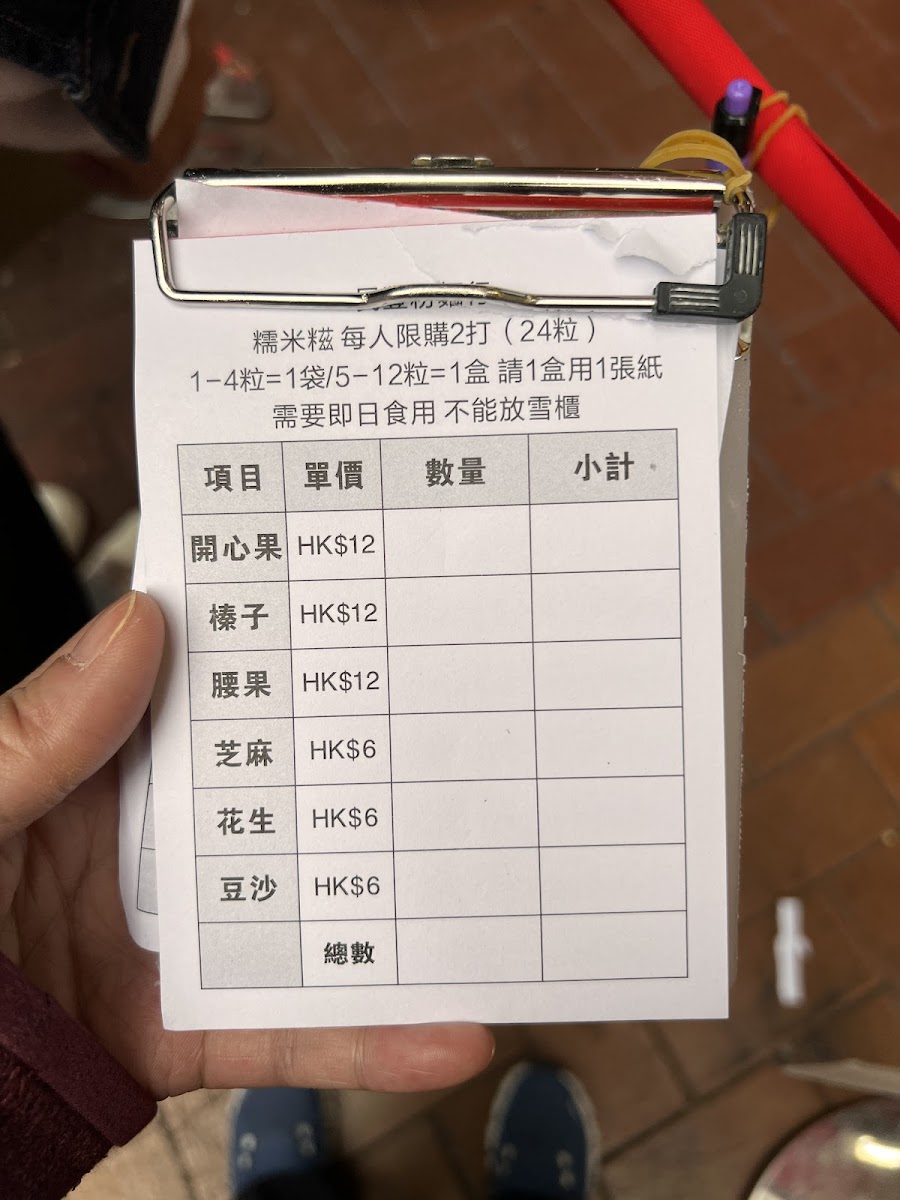 糯米糍 每人限購2打（24粒）
1-4粒=1袋/5-12粒=1盒 請1盒用1張紙
需要即日食用 不能放雪櫃
項目 單價 數量 小計
開心果 HK$12
榛子 HK$12
腰果 HK$12
芝麻 HK$6
花生 HK$6
豆沙 HK$6
總數